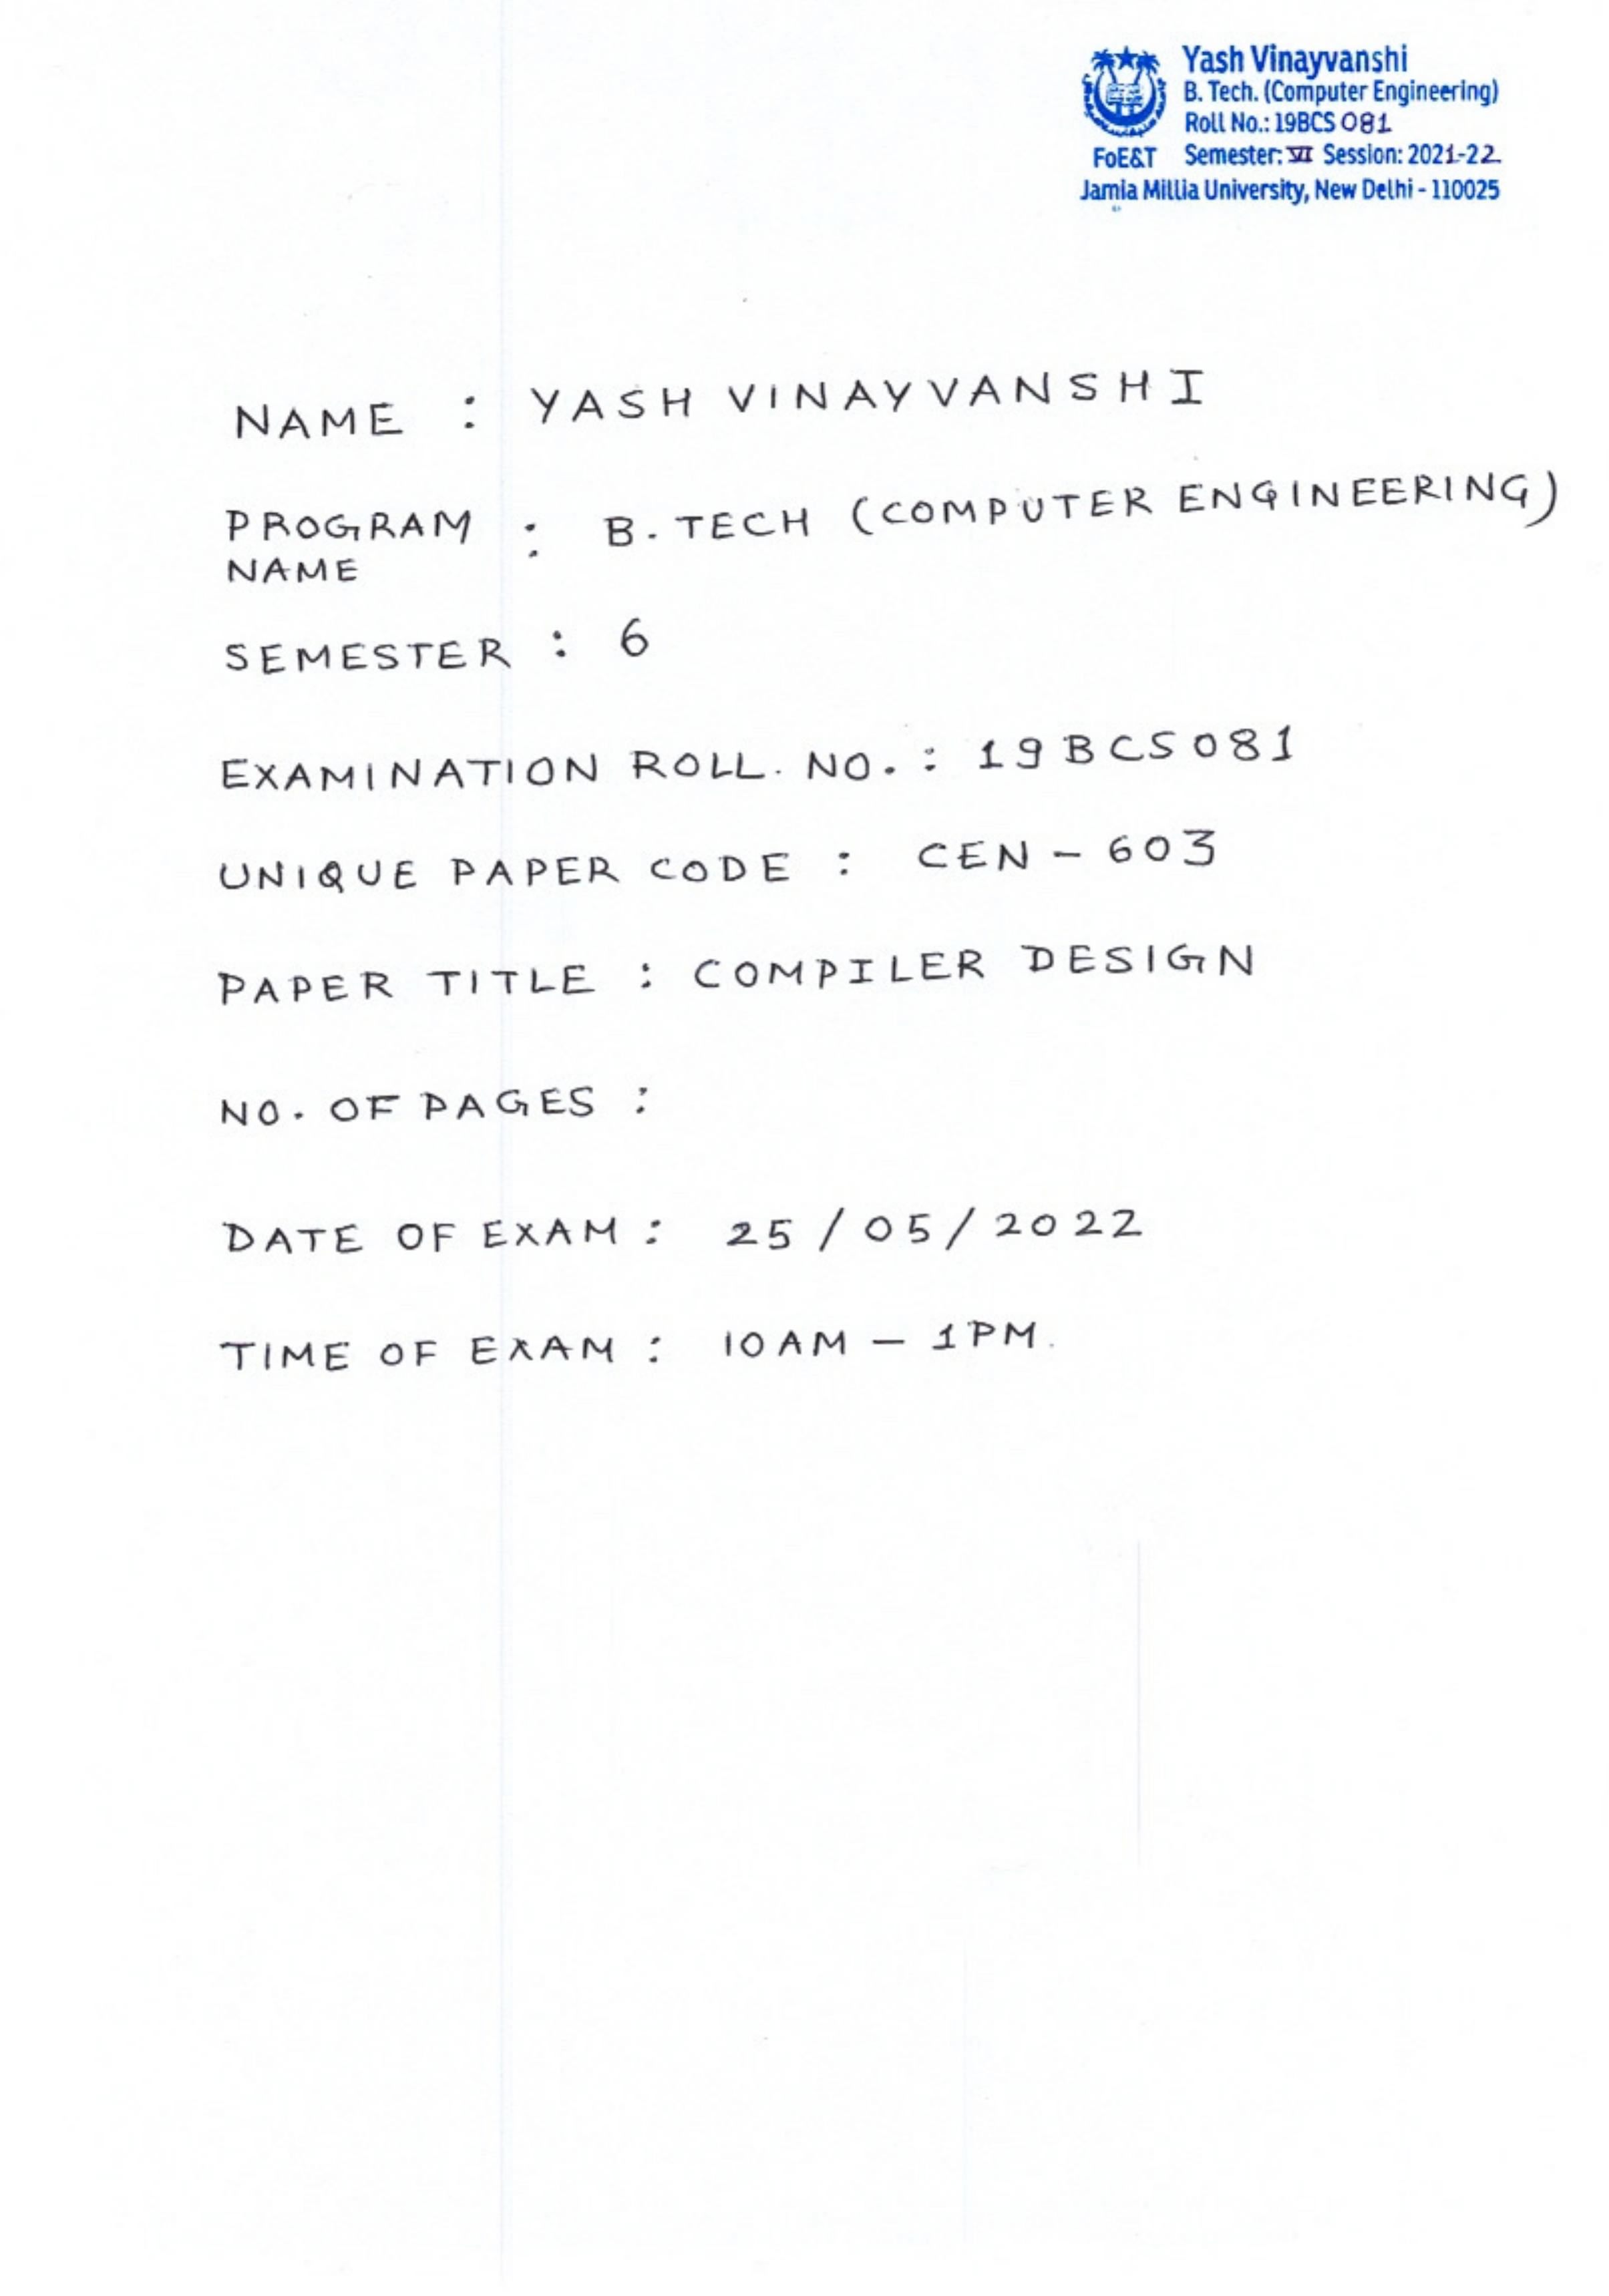 Yash Vinayvanshi
B. Tech. (Computer Engineering)
Roll No.: 19BCS 081
FoE&T Semester: VI Session: 2021-22
Jamia Millia University, New Delhi - 110025
NAME : YASH VINAYVANSHI
PROGRAM : B. TECH (COMPUTER ENGINEERING)
NAME
SEMESTER : 6
EXAMINATION ROLL. NO. : 19BCS081
UNIQUE PAPER CODE : CEN - 603
PAPER TITLE : COMPILER DESIGN
NO. OF PAGES :
DATE OF EXAM : 25 / 05 / 2022
TIME OF EXAM : 10 AM - 1 PM.